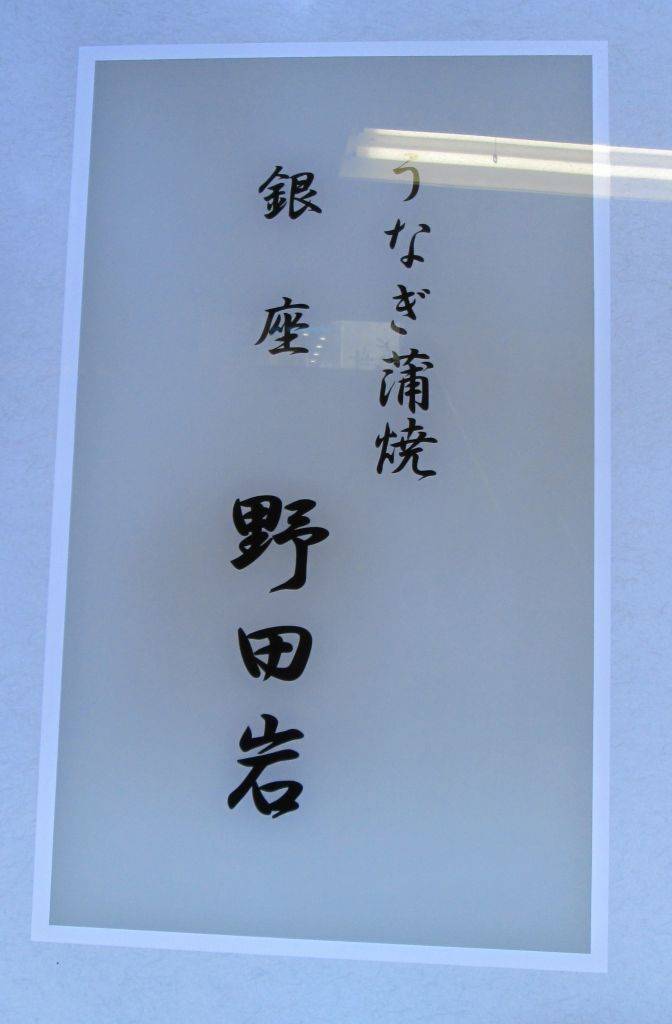 うなぎ蒲焼
銀座 野田岩